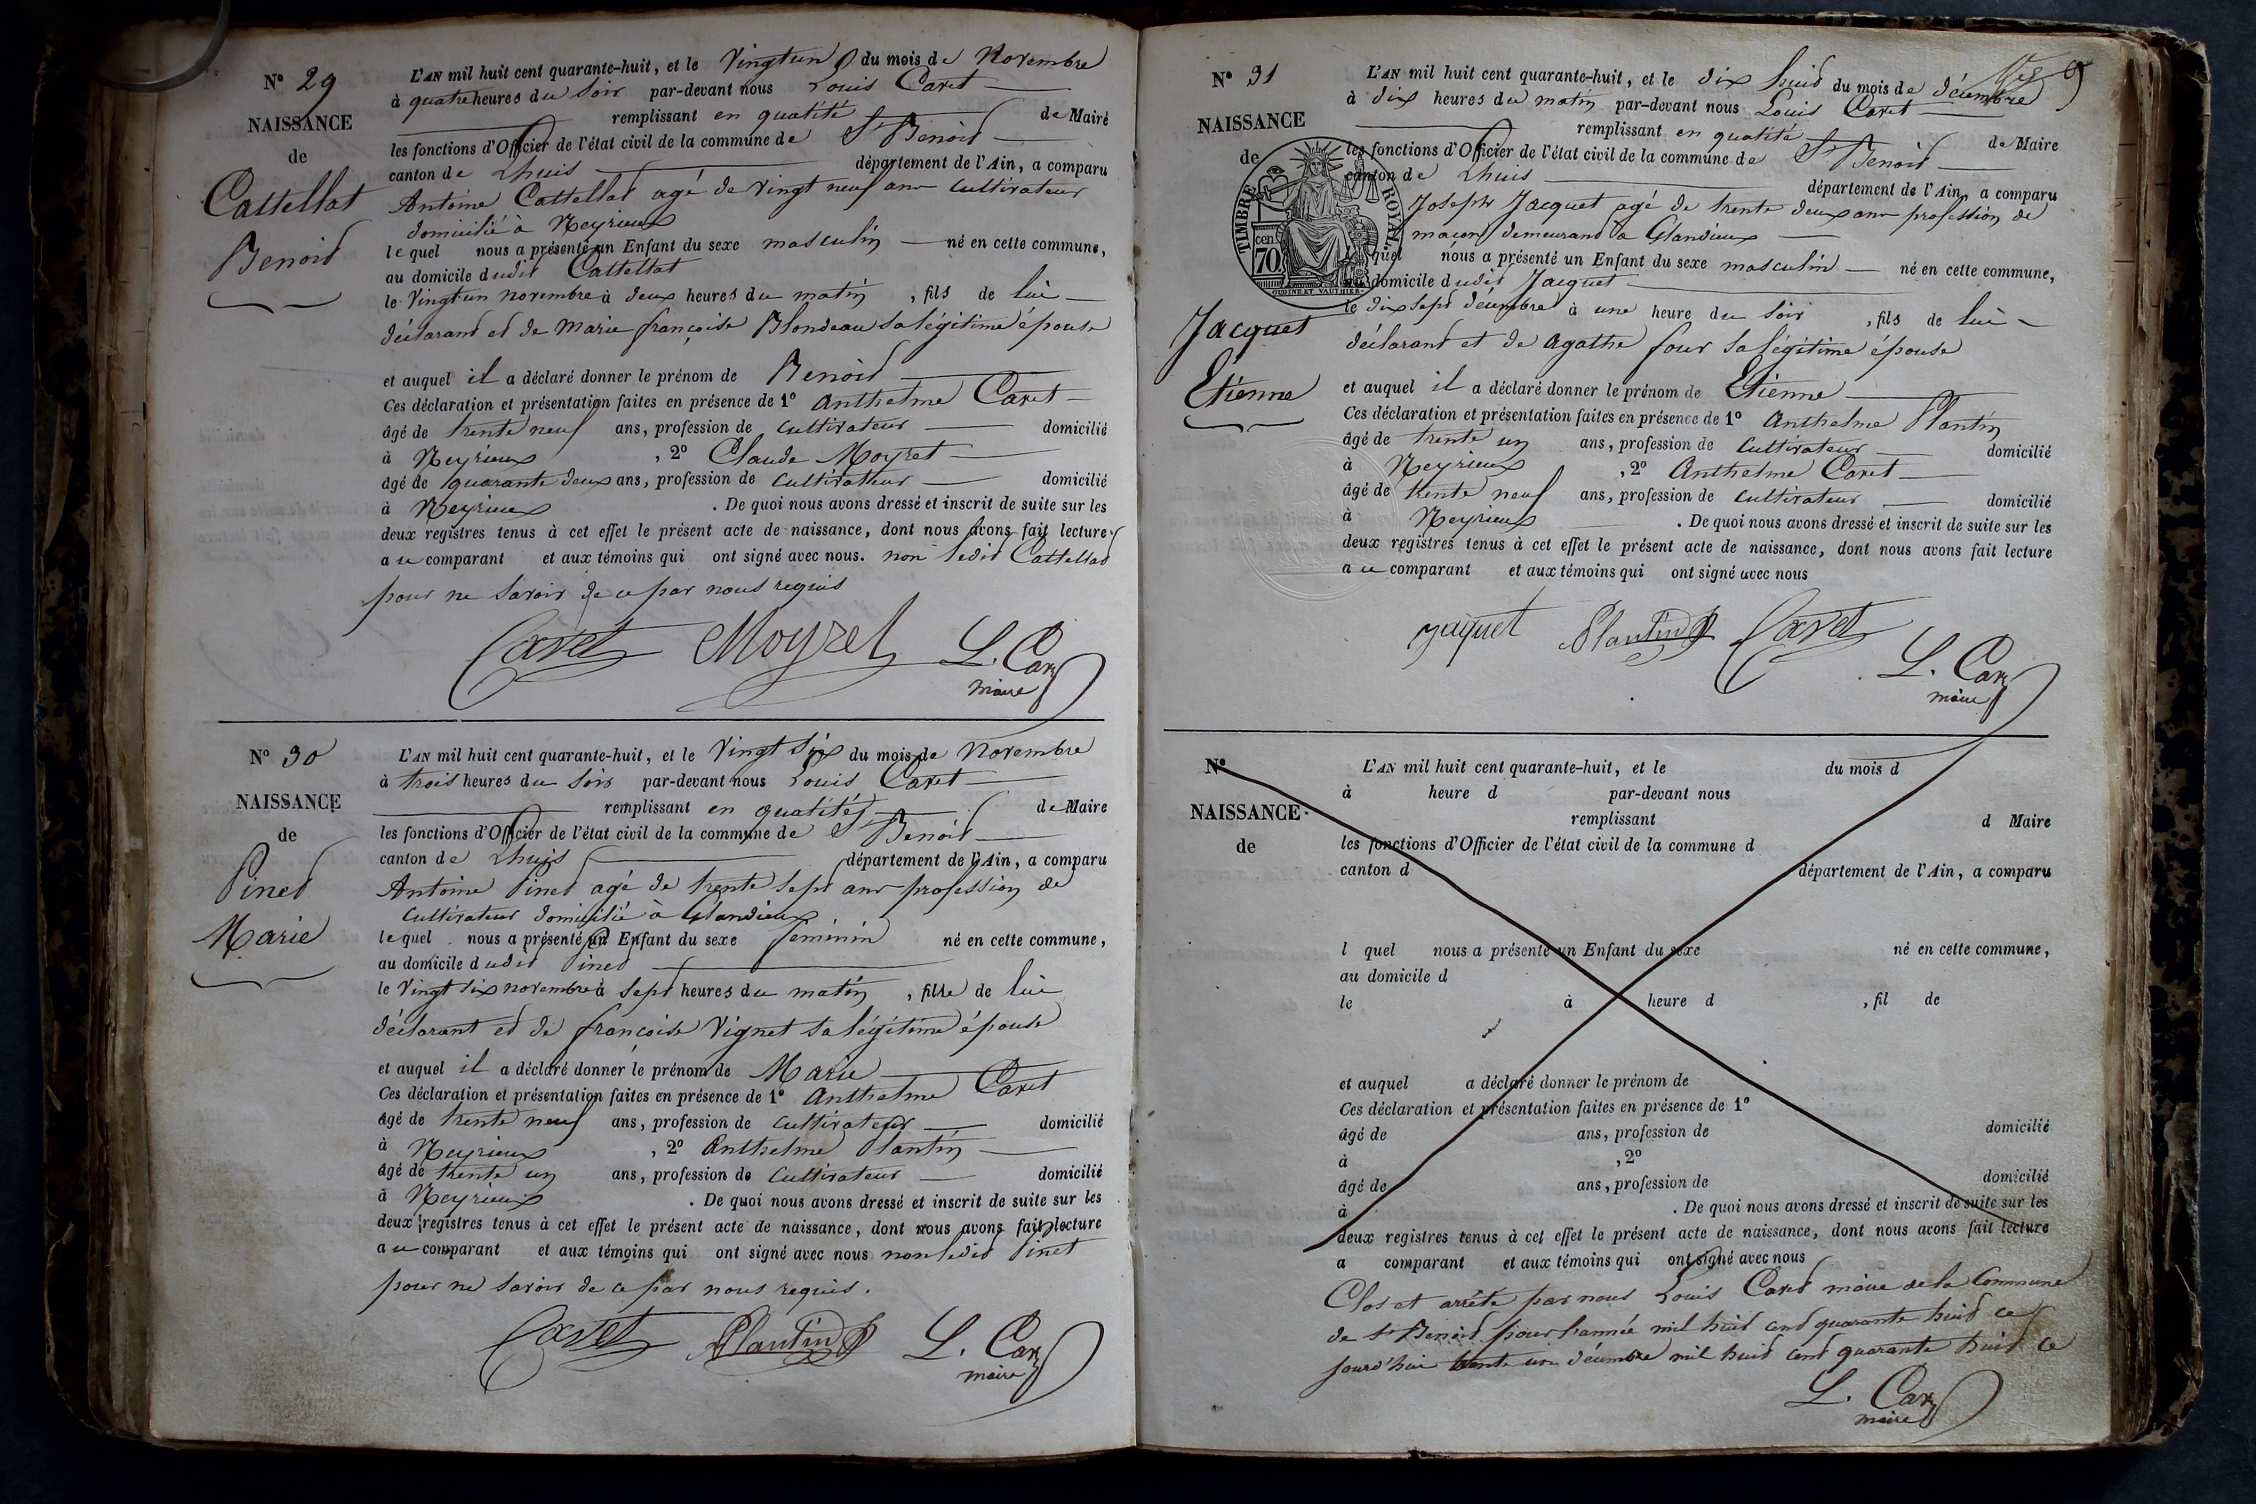 N° 29
NAISSANCE
de
Cattellat
Benoid
L'AN mil huit cent quarante-huit, et le Vingt un du mois de Novembre
à quatre heures du Soir par-devant nous Louis Caret
remplissant en qualité de Maire
les fonctions d'Officier de l'état civil de la commune de St Benoid
canton de Lhuis département de l'Ain, a comparu
Antoine Cattellat agé de Vingt neuf ans cultivateur
domicilié à Neyrieux
le quel nous a présenté un Enfant du sexe masculin né en cette commune,
au domicile dudit Cattellat
le Vingt un novembre à deux heures du matin, fils de lui
déclarant et de Marie françoise Blondeau sa légitime épouse
et auquel il a déclaré donner le prénom de Benoid
Ces déclaration et présentation faites en présence de 1° Anthelme Caret
âgé de trente neuf ans, profession de cultivateur domicilié
à Neyrieux, 2° Claude Moyret
âgé de quarante deux ans, profession de cultivateur domicilié
à Neyrieux. De quoi nous avons dressé et inscrit de suite sur les
deux registres tenus à cet effet le présent acte de naissance, dont nous avons fait lecture
au comparant et aux témoins qui ont signé avec nous. non ledit Cattellat
pour ne savoir de ce par nous requis
Caret Moyret L. Caret
maire
N° 30
NAISSANCE
de
Pinet
Marie
L'AN mil huit cent quarante-huit, et le Vingt Six du mois de Novembre
à trois heures du Soir par-devant nous Louis Caret
remplissant en qualité de Maire
les fonctions d'Officier de l'état civil de la commune de St Benoid
canton de Lhuis département de l'Ain, a comparu
Antoine Pinet agé de trente sept ans profession de
cultivateur domicilié à Glandieux
lequel nous a présenté un Enfant du sexe feminin né en cette commune,
au domicile dudit Pinet
le Vingt six novembre à sept heures du matin, fille de lui
déclarant et de françoise Vignet sa légitime épouse
et auquel il a déclaré donner le prénom de Marie
Ces déclaration et présentation faites en présence de 1° Anthelme Caret
âgé de trente neuf ans, profession de cultivateur domicilié
à Neyrieux, 2° Anthelme Plantin
âgé de trente un ans, profession de cultivateur domicilié
à Neyrieux. De quoi nous avons dressé et inscrit de suite sur les
deux registres tenus à cet effet le présent acte de naissance, dont nous avons fait lecture
au comparant et aux témoins qui ont signé avec nous non ledit Pinet
pour ne savoir de ce par nous requis.
Caret Plantin L. Caret
maire
N° 31
NAISSANCE
de
TIMBRE ROYAL.
70 cen.
OUDINE ET VAUTHIER
Jacquet
Etienne
L'AN mil huit cent quarante-huit, et le dix huid du mois de décembre
à dix heures du matin par-devant nous Louis Caret
remplissant en qualité de Maire
les fonctions d'Officier de l'état civil de la commune de St Benoid
canton de Lhuis département de l'Ain, a comparu
Joseph Jacquet agé de trente deux ans profession de
maçon demeurand à Glandieux
quel nous a présenté un Enfant du sexe masculin né en cette commune,
au domicile dudit Jacquet
le dix sept décembre à une heure du soir, fils de lui
déclarant et de Agathe four sa légitime épouse
et auquel il a déclaré donner le prénom de Etienne
Ces déclaration et présentation faites en présence de 1° Anthelme Plantin
âgé de trente un ans, profession de cultivateur domicilié
à Neyrieux, 2° Anthelme Caret
âgé de trente neuf ans, profession de cultivateur domicilié
à Neyrieux. De quoi nous avons dressé et inscrit de suite sur les
deux registres tenus à cet effet le présent acte de naissance, dont nous avons fait lecture
au comparant et aux témoins qui ont signé avec nous
Jaquet Plantin Caret
L. Caret
maire
N°
NAISSANCE
de
L'AN mil huit cent quarante-huit, et le du mois d
à heure d par-devant nous
remplissant d Maire
les fonctions d'Officier de l'état civil de la commune d
canton d département de l'Ain, a comparu
l quel nous a présenté un Enfant du sexe né en cette commune,
au domicile d
le à heure d , fil de
et auquel a déclaré donner le prénom de
Ces déclaration et présentation faites en présence de 1°
âgé de ans, profession de domicilié
à , 2°
âgé de ans, profession de domicilié
à . De quoi nous avons dressé et inscrit de suite sur les
deux registres tenus à cet effet le présent acte de naissance, dont nous avons fait lecture
a comparant et aux témoins qui ont signé avec nous
Clos et arrêté par nous Louis Caret maire de la Commune
de St Benoid pour l'année mil huid cent quarante huid ce
jourd'hui trente un décembre mil huid cent quarante huid ce
L. Caret
maire